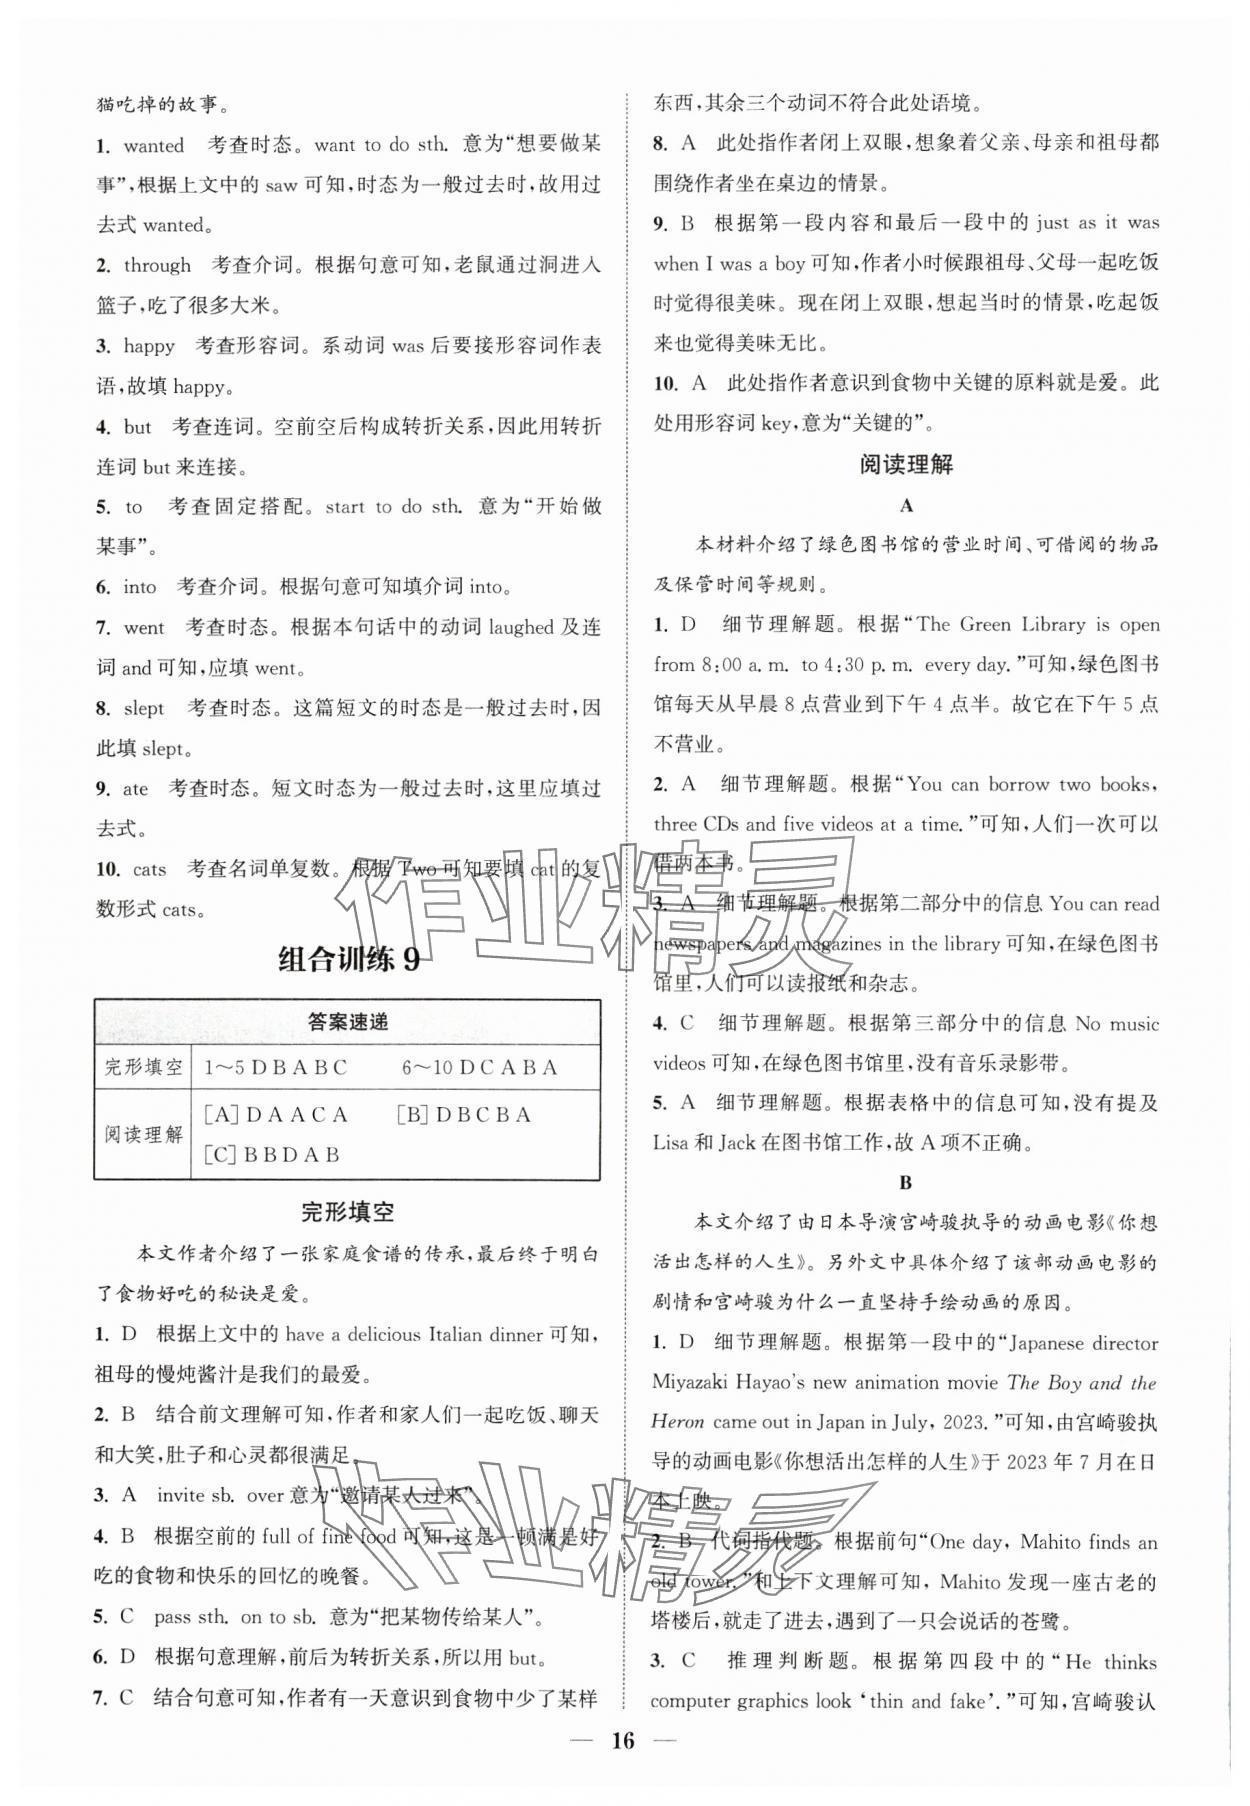 猫吃掉的故事。
1. wanted　考查时态。want to do sth. 意为“想要做某
事”,根据上文中的 saw 可知,时态为一般过去时,故用过
去式 wanted。
2. through　考查介词。根据句意可知,老鼠通过洞进入
篮子,吃了很多大米。
3. happy　考查形容词。系动词 was 后要接形容词作表
语,故填 happy。
4. but　考查连词。空前空后构成转折关系,因此用转折
连词 but 来连接。
5. to　考查固定搭配。start to do sth. 意为“开始做
某事”。
6. into　考查介词。根据句意可知填介词 into。
7. went　考查时态。根据本句话中的动词 laughed 及连
词 and 可知,应填 went。
8. slept　考查时态。这篇短文的时态是一般过去时,因
此填 slept。
9. ate　考查时态。短文时态为一般过去时,这里应填过
去式。
10. cats　考查名词单复数。根据 Two 可知要填 cat 的复
数形式 cats。
组合训练 9
答案速递
完形填空　1～5 D B A B C　6～10 D C A B A
阅读理解　[A] D A A C A　[B] D B C B A
[C] B B D A B
完形填空
本文作者介绍了一张家庭食谱的传承,最后终于明白
了食物好吃的秘诀是爱。
1. D　根据上文中的 have a delicious Italian dinner 可知,
祖母的慢炖酱汁是我们的最爱。
2. B　结合前文理解可知,作者和家人们一起吃饭、聊天
和大笑,肚子和心灵都很满足。
3. A　invite sb. over 意为“邀请某人过来”。
4. B　根据空前的 full of fine food 可知,这是一顿满是好
吃的食物和快乐的回忆的晚餐。
5. C　pass sth. on to sb. 意为“把某物传给某人”。
6. D　根据句意理解,前后为转折关系,所以用 but。
7. C　结合句意可知,作者有一天意识到食物中少了某样
东西,其余三个动词不符合此处语境。
8. A　此处指作者闭上双眼,想象着父亲、母亲和祖母都
围绕作者坐在桌边的情景。
9. B　根据第一段内容和最后一段中的 just as it was
when I was a boy 可知,作者小时候跟祖母、父母一起吃饭
时觉得很美味。现在闭上双眼,想起当时的情景,吃起饭
来也觉得美味无比。
10. A　此处指作者意识到食物中关键的原料就是爱。此
处用形容词 key,意为“关键的”。
阅读理解
A
本材料介绍了绿色图书馆的营业时间、可借阅的物品
及保管时间等规则。
1. D　细节理解题。根据“The Green Library is open
from 8:00 a. m. to 4:30 p. m. every day.”可知,绿色图书
馆每天从早晨 8 点营业到下午 4 点半。故它在下午 5 点
不营业。
2. A　细节理解题。根据“You can borrow two books,
three CDs and five videos at a time.”可知,人们一次可以
借两本书。
3. A　细节理解题。根据第二部分中的信息 You can read
newspapers and magazines in the library 可知,在绿色图书
馆里,人们可以读报纸和杂志。
4. C　细节理解题。根据第三部分中的信息 No music
videos 可知,在绿色图书馆里,没有音乐录影带。
5. A　细节理解题。根据表格中的信息可知,没有提及
Lisa 和 Jack 在图书馆工作,故 A 项不正确。
B
本文介绍了由日本导演宫崎骏执导的动画电影《你想
活出怎样的人生》。另外文中具体介绍了该部动画电影的
剧情和宫崎骏为什么一直坚持手绘动画的原因。
1. D　细节理解题。根据第一段中的“Japanese director
Miyazaki Hayao's new animation movie The Boy and the
Heron came out in Japan in July, 2023.”可知,由宫崎骏执
导的动画电影《你想活出怎样的人生》于 2023 年 7 月在日
本上映。
2. B　代词指代题。根据前句“One day, Mahito finds an
old tower.”和上下文理解可知,Mahito 发现一座古老的
塔楼后,就走了进去,遇到了一只会说话的苍鹭。
3. C　推理判断题。根据第四段中的“He thinks
computer graphics look ‘thin and fake’.”可知,宫崎骏认
— 16 —
作业精灵
作业精灵